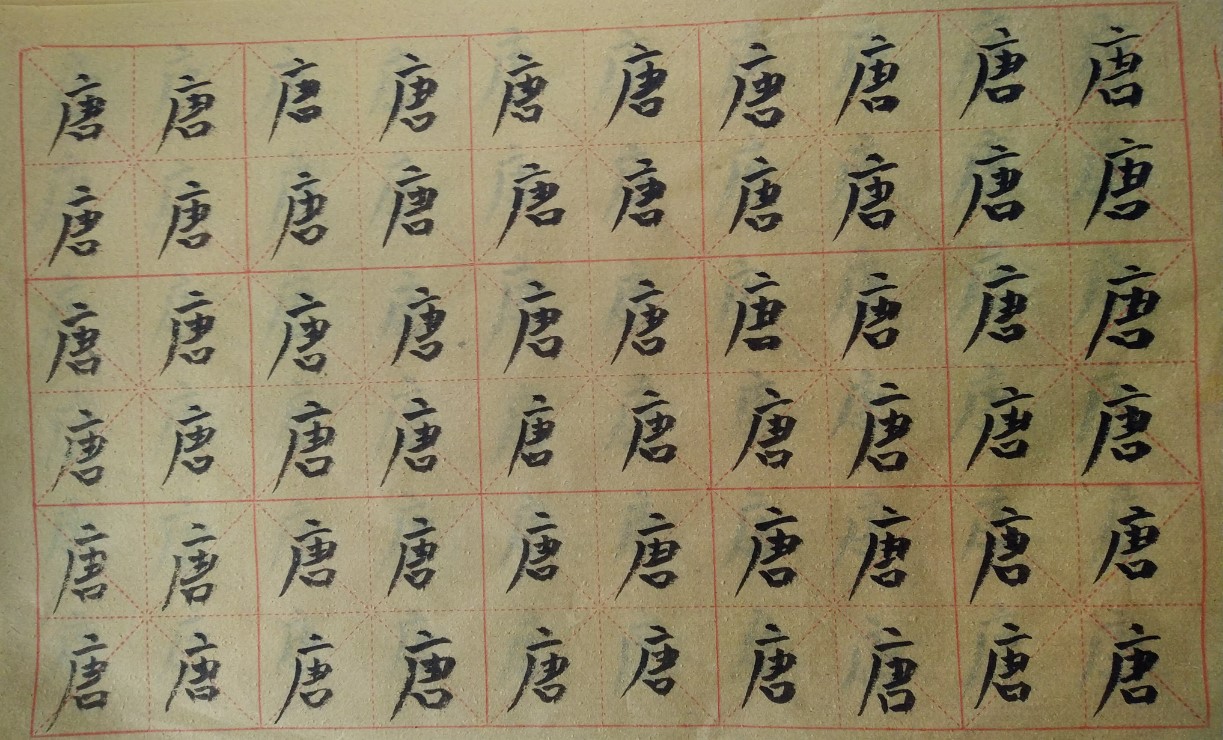 唐唐唐唐唐唐唐唐唐唐
唐唐唐唐唐唐唐唐唐唐
唐唐唐唐唐唐唐唐唐唐
唐唐唐唐唐唐唐唐唐唐
唐唐唐唐唐唐唐唐唐唐
唐唐唐唐唐唐唐唐唐唐